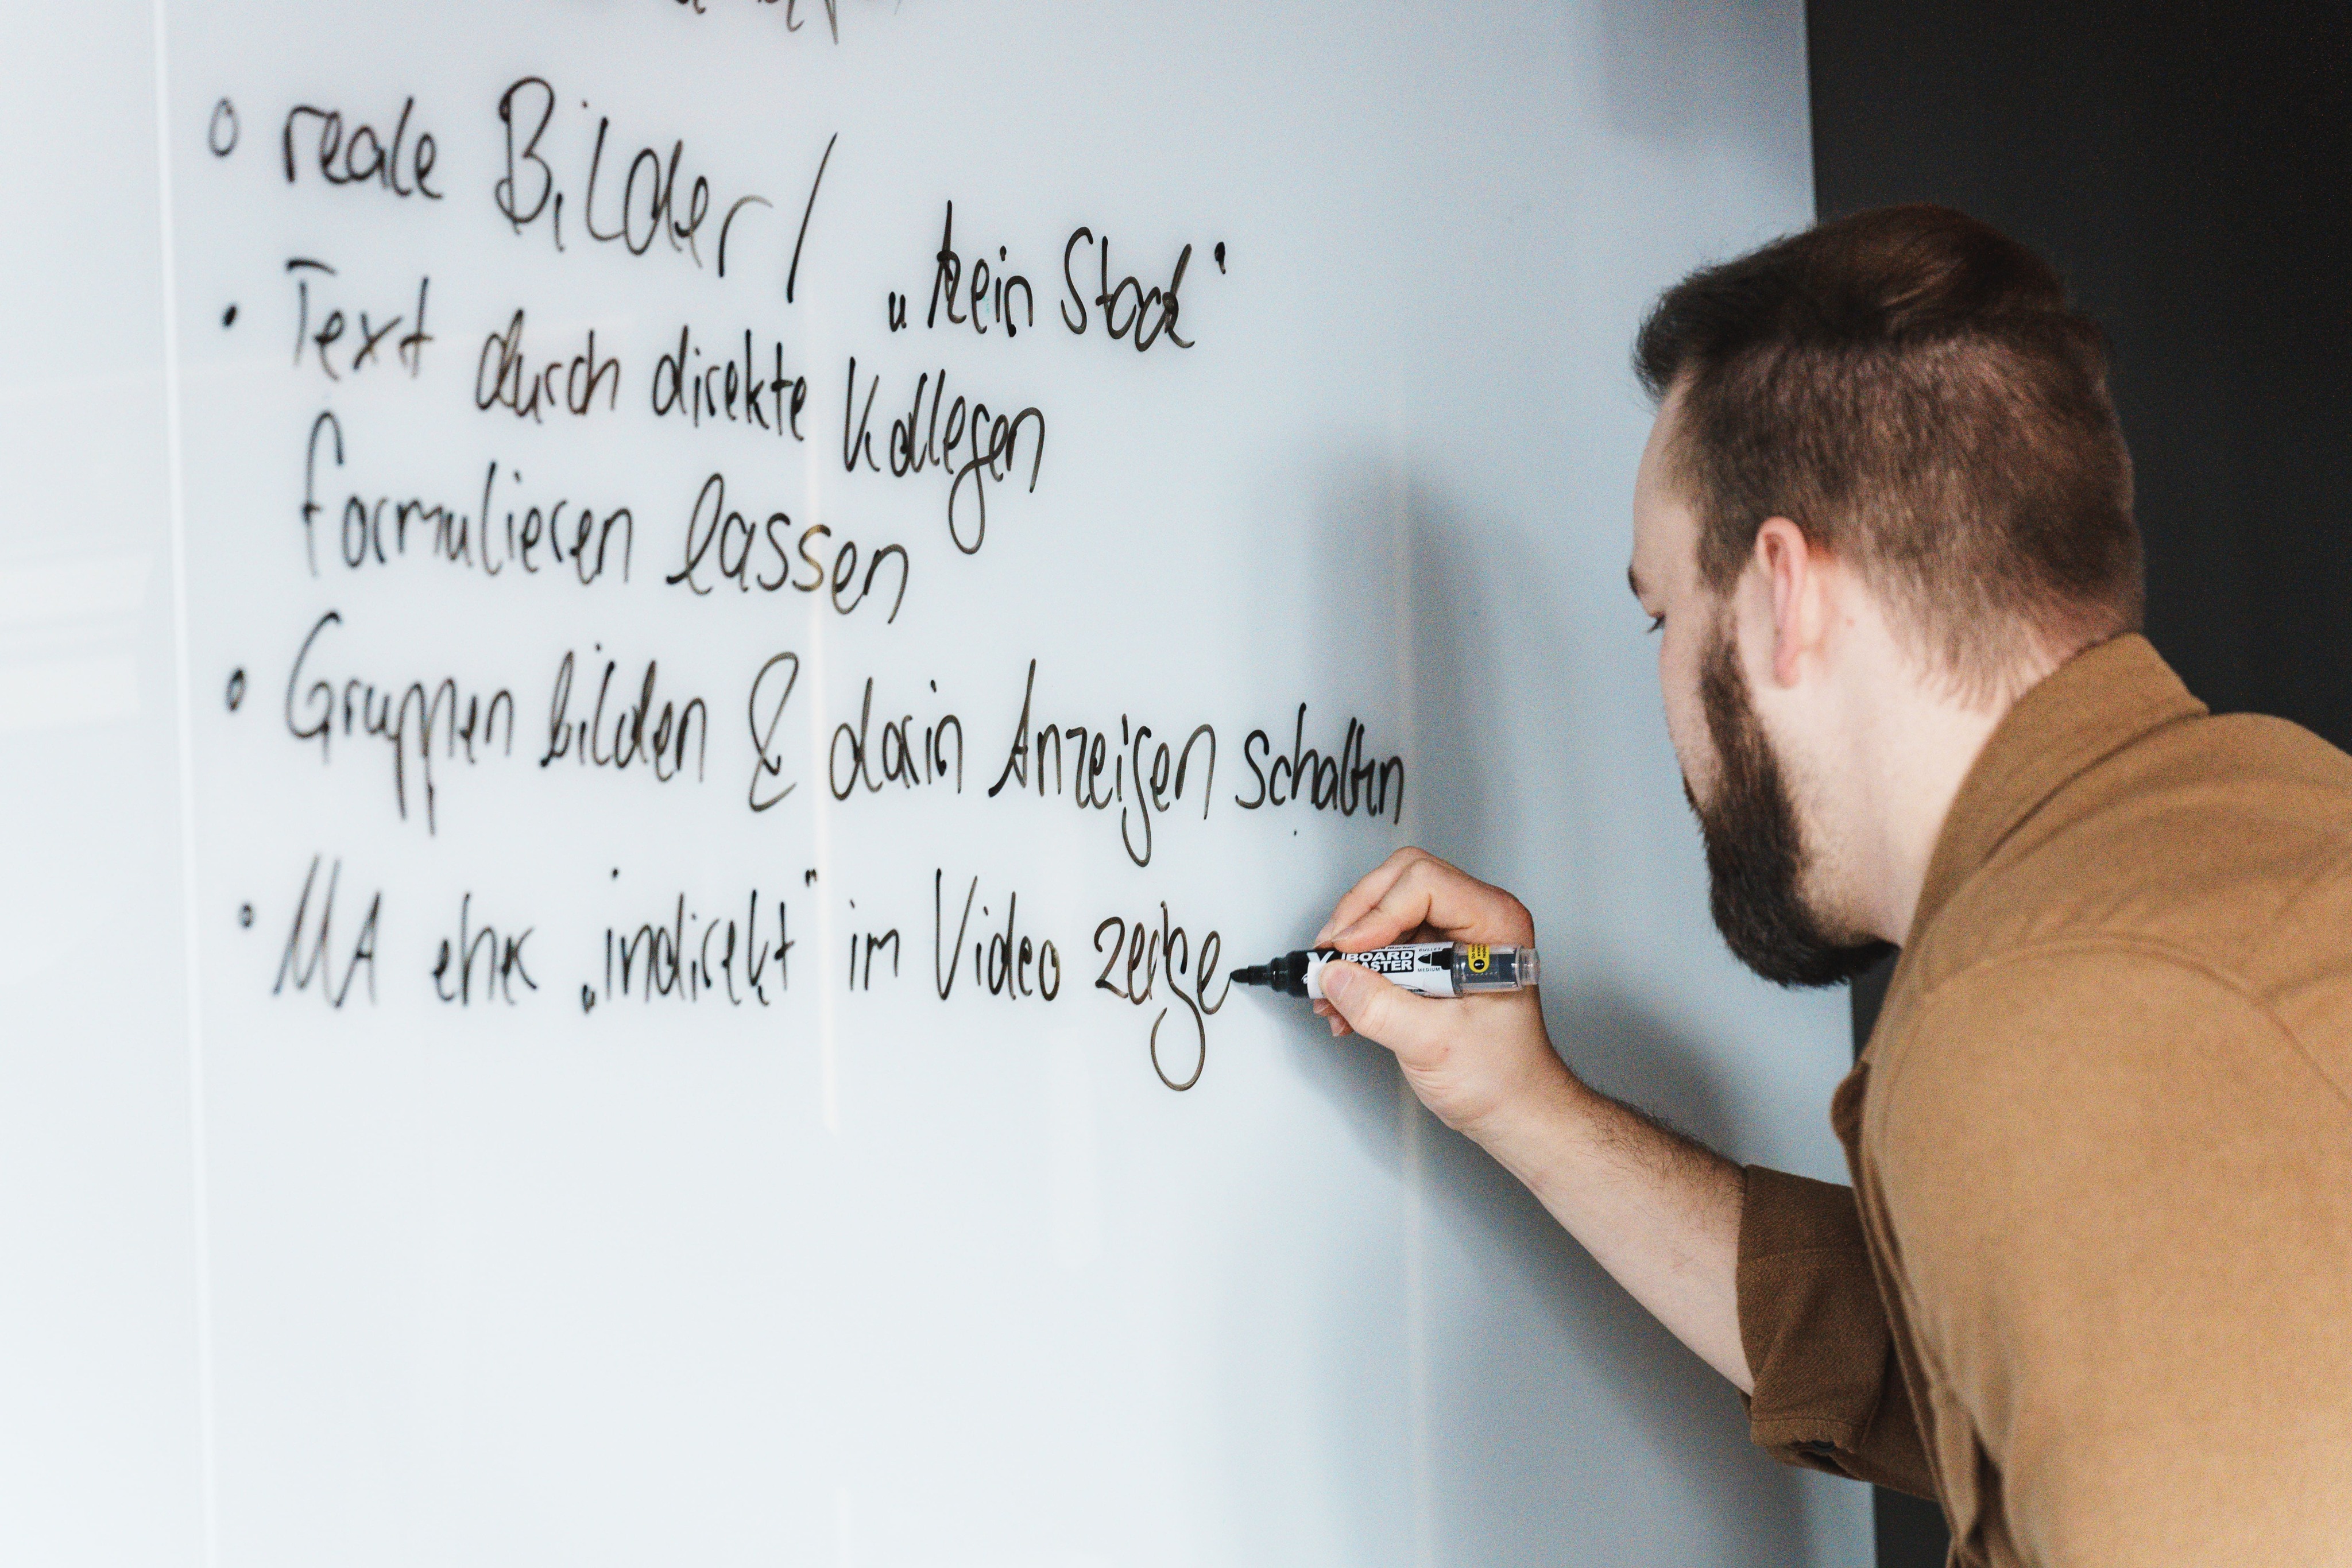 o reale Bilder / „kein Stock"
• Text durch direkte Kollegen
formulieren lassen
• Gruppen bilden & darin Anzeigen schalten
• MA eher „indirekt" im Video zeige
BOARD
MEDIUM